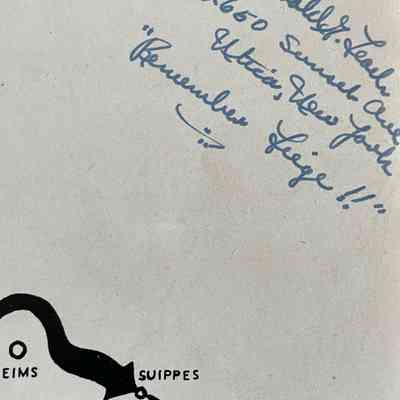 G. Leach
660 Sunset Ave
Utica, New York
"Remember Liege !!"
EIMS
SUIPPES